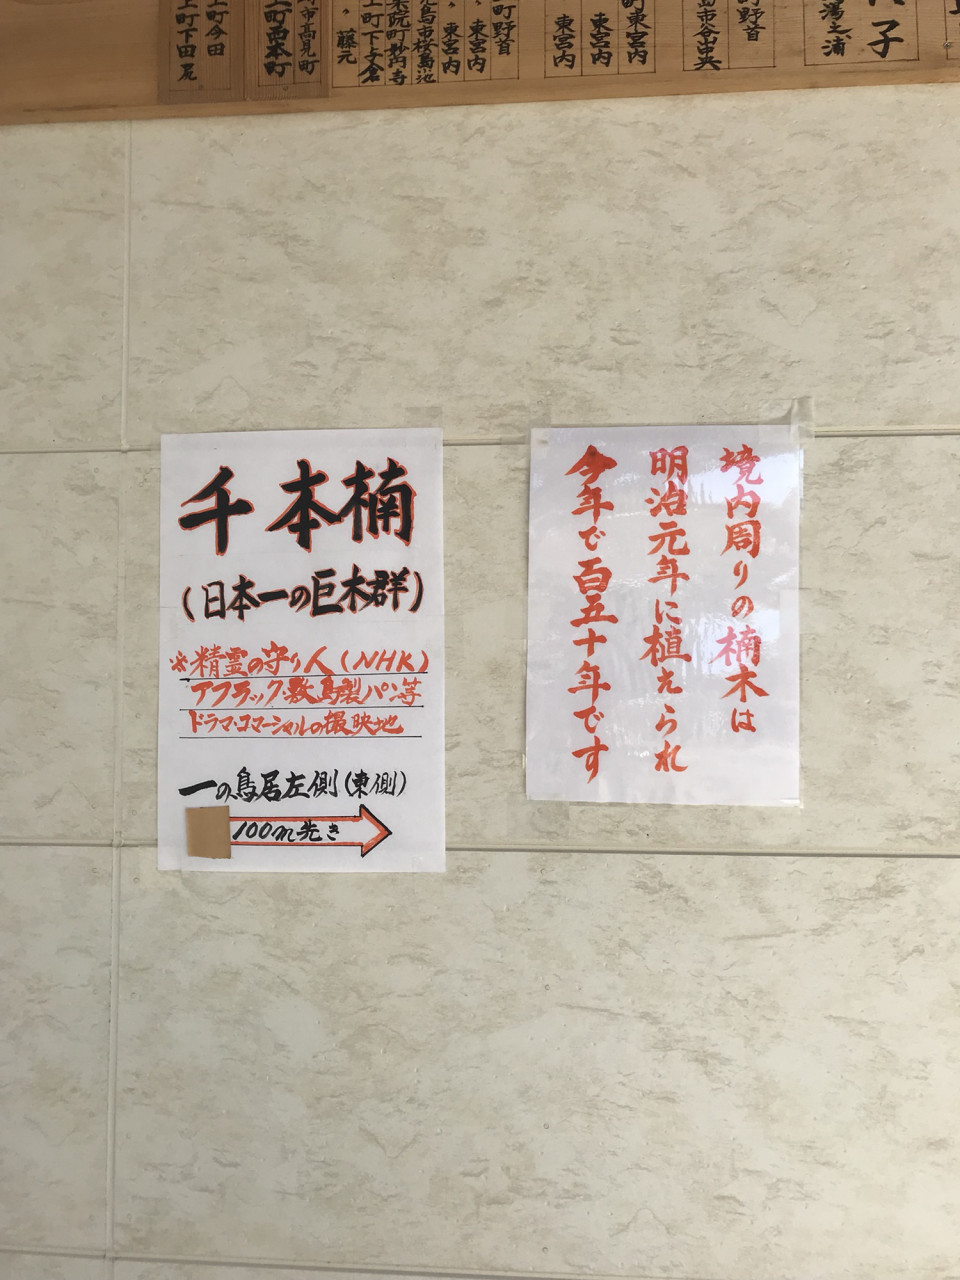 子
湯之浦
町野首
市谷中央
町東宮内
東宮内
東宮内
町野首
〃 東宮内
〃 東宮内
児島市桜島池
楽院町妙円寺
上町下与倉
〃 藤元
市高見町
上町西本町
上町今田
上町下田尾
千本楠
(日本一の巨木群)
※精霊の守り人(NHK)
アフラック・敷島製パン等
ドラマ・コマーシャルの撮映地
一の鳥居左側(東側)
100m先き
境内周りの楠木は
明治元年に植えられ
今年で百五十年です